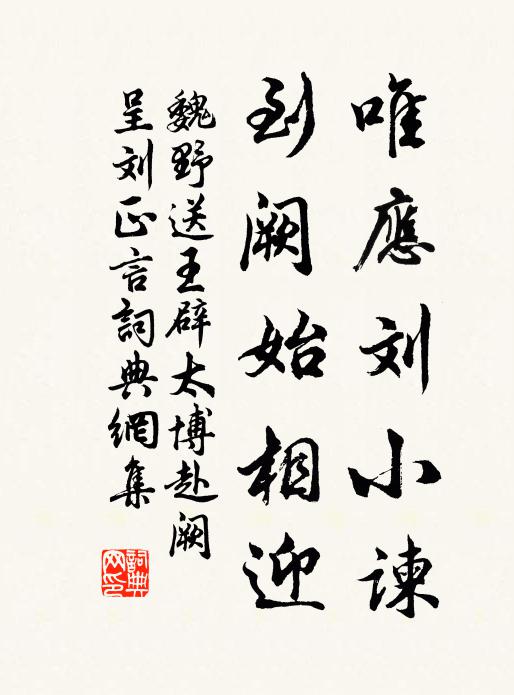 唯應刘小諫
到阙始相迎
魏野送王辟太博赴阙
呈刘正言詞典網集
詞典网印